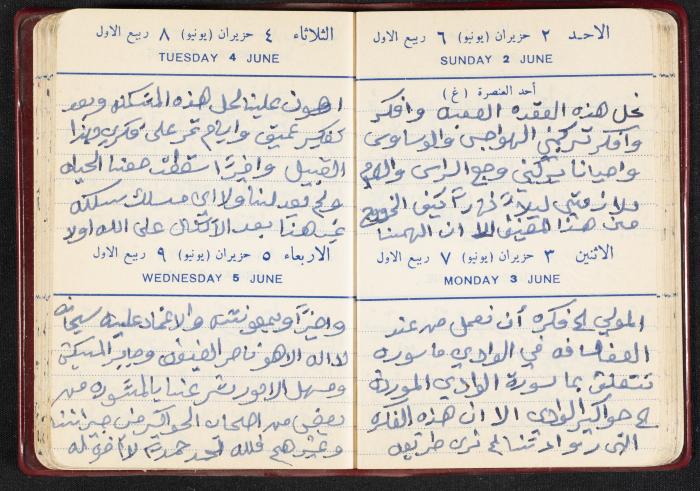 الاحد ٢ حزيران (يونيو) ٦ ربيع الاول
SUNDAY 2 JUNE
أحد العنصرة (غ)
نحل هذه العقده الصعبه وافكر
وافكر تركبني الهواجس والوساوس
واحيانا يركبني وجع الراس والهم
يلازمني ليلاً نهاراً كيف الخروج
من هذا المضيق الا ان الهمنا
الاثنين ٣ حزيران (يونيو) ٧ ربيع الاول
MONDAY 3 JUNE
المولى فكره أن نعمل من عند
في الوادي ماسوره
تتعلق بماسورة الوادي الموردة
حواكير الوادي الا ان هذه الفكره
التي نرى طريقه
الثلاثاء ٤ حزيران (يونيو) ٨ ربيع الاول
TUESDAY 4 JUNE
اهون علينا لحل هذه المشكله وبعد
تفكير عميق وايام تمر على فكري بهذا
القبيل واخيراً
ولم يعد لنا ولا اي مسلك نسلكه
غير هذا بعد الاتكال على الله اولا
الاربعاء ٥ حزيران (يونيو) ٩ ربيع الاول
WEDNESDAY 5 JUNE
واخيراً وبمعونته والاعتماد عليه سبحانه
لا اله الا هو ناصر الضعيف وجابر
ومسهل الامور شرعنا بالمشوره من
بعض من اصحاب الحواكير من جيراننا
وغيرهم فلله الحمد